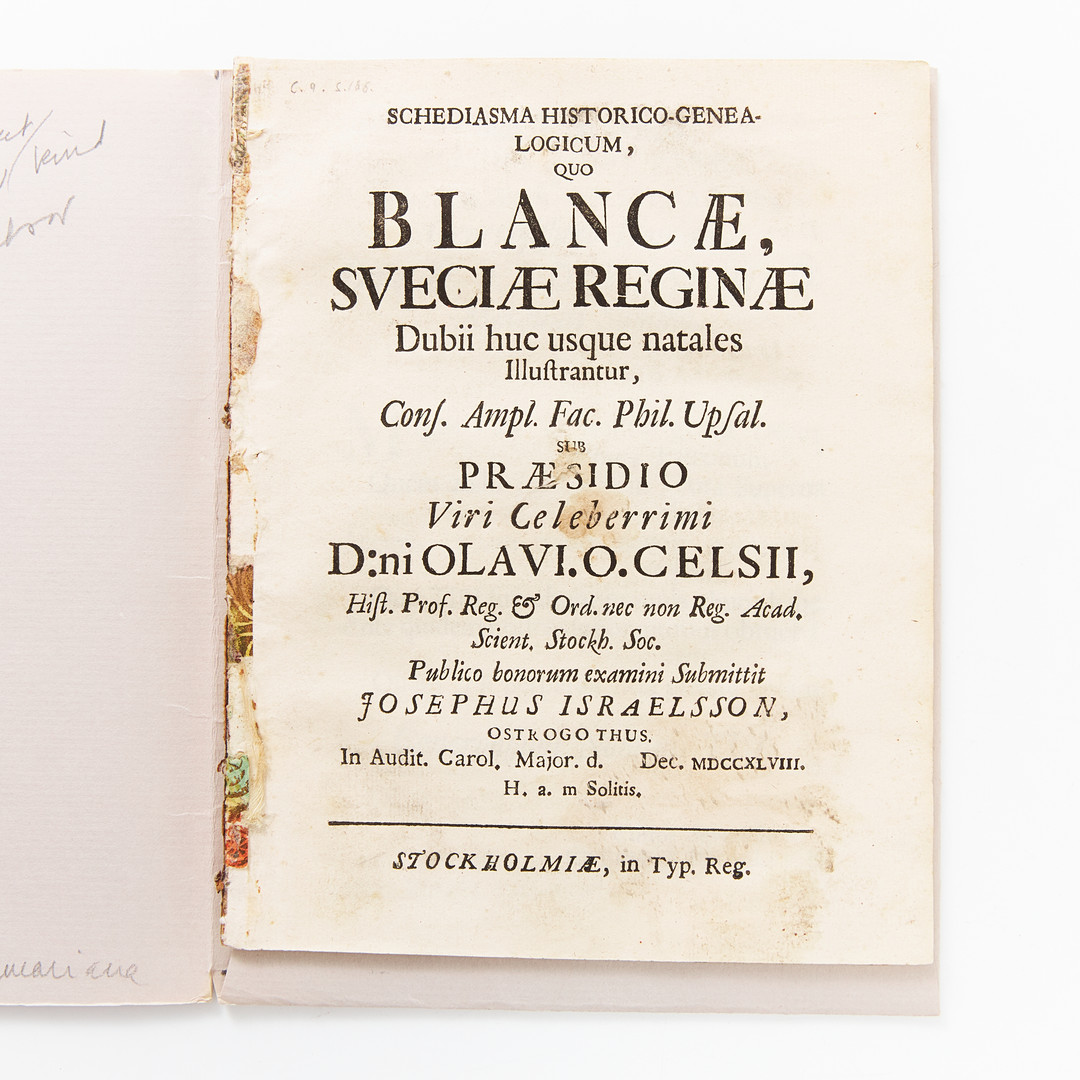 SCHEDIASMA HISTORICO-GENEA-
LOGICUM,
QUO
BLANCÆ,
SVECIÆ REGINÆ
Dubii huc usque natales
Illuſtrantur,
Conſ. Ampl. Fac. Phil. Upſal.
SUB
PRÆSIDIO
Viri Celeberrimi
D:ni OLAVI. O. CELSII,
Hiſt. Prof. Reg. & Ord. nec non Reg. Acad.
Scient. Stockh. Soc.
Publico bonorum examini Submittit
JOSEPHUS ISRAELSSON,
OSTROGOTHUS.
In Audit. Carol. Major. d. Dec. MDCCXLVIII.
H. a. m Solitis.
STOCKHOLMIÆ, in Typ. Reg.